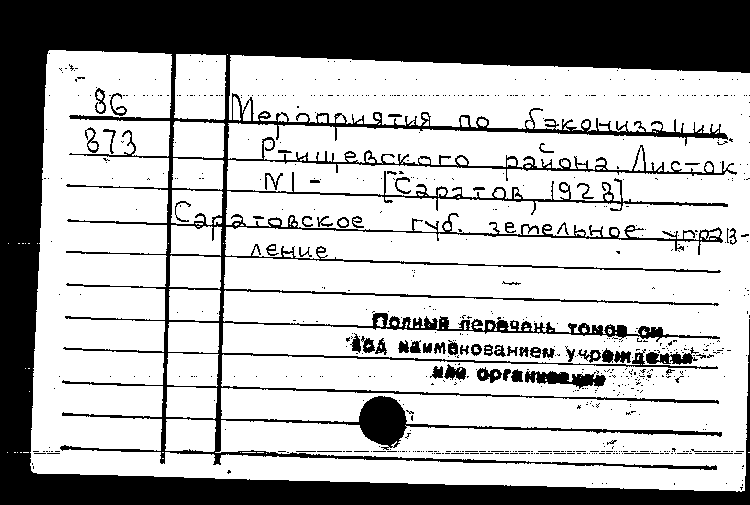 86
Мероприятия по бэконизации
873
Ртищевского района. Листок
N1 - [Саратов, 1928].
Саратовское губ. земельное управ-
ление
Полный перечень томов см.
под наименованием учреждения
или организации